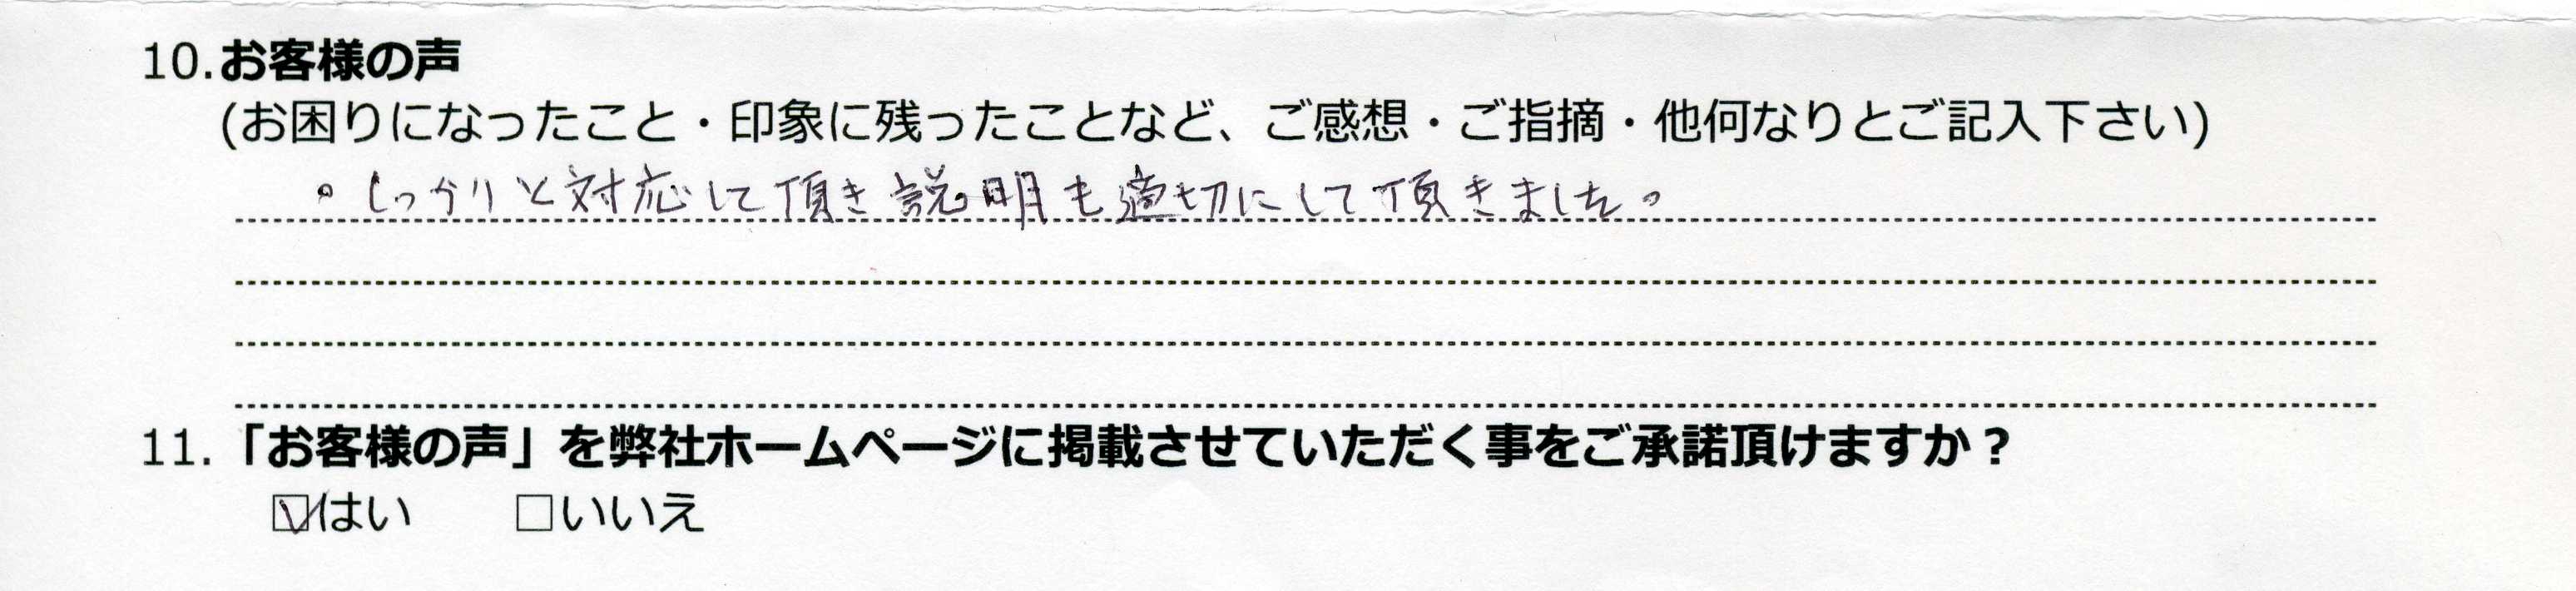 10.お客様の声
(お困りになったこと・印象に残ったことなど、ご感想・ご指摘・他何なりとご記入下さい)
。しっかりと対応して頂き説明も適切にして頂きました。
11.「お客様の声」を弊社ホームページに掲載させていただく事をご承諾頂けますか?
☑はい　□いいえ